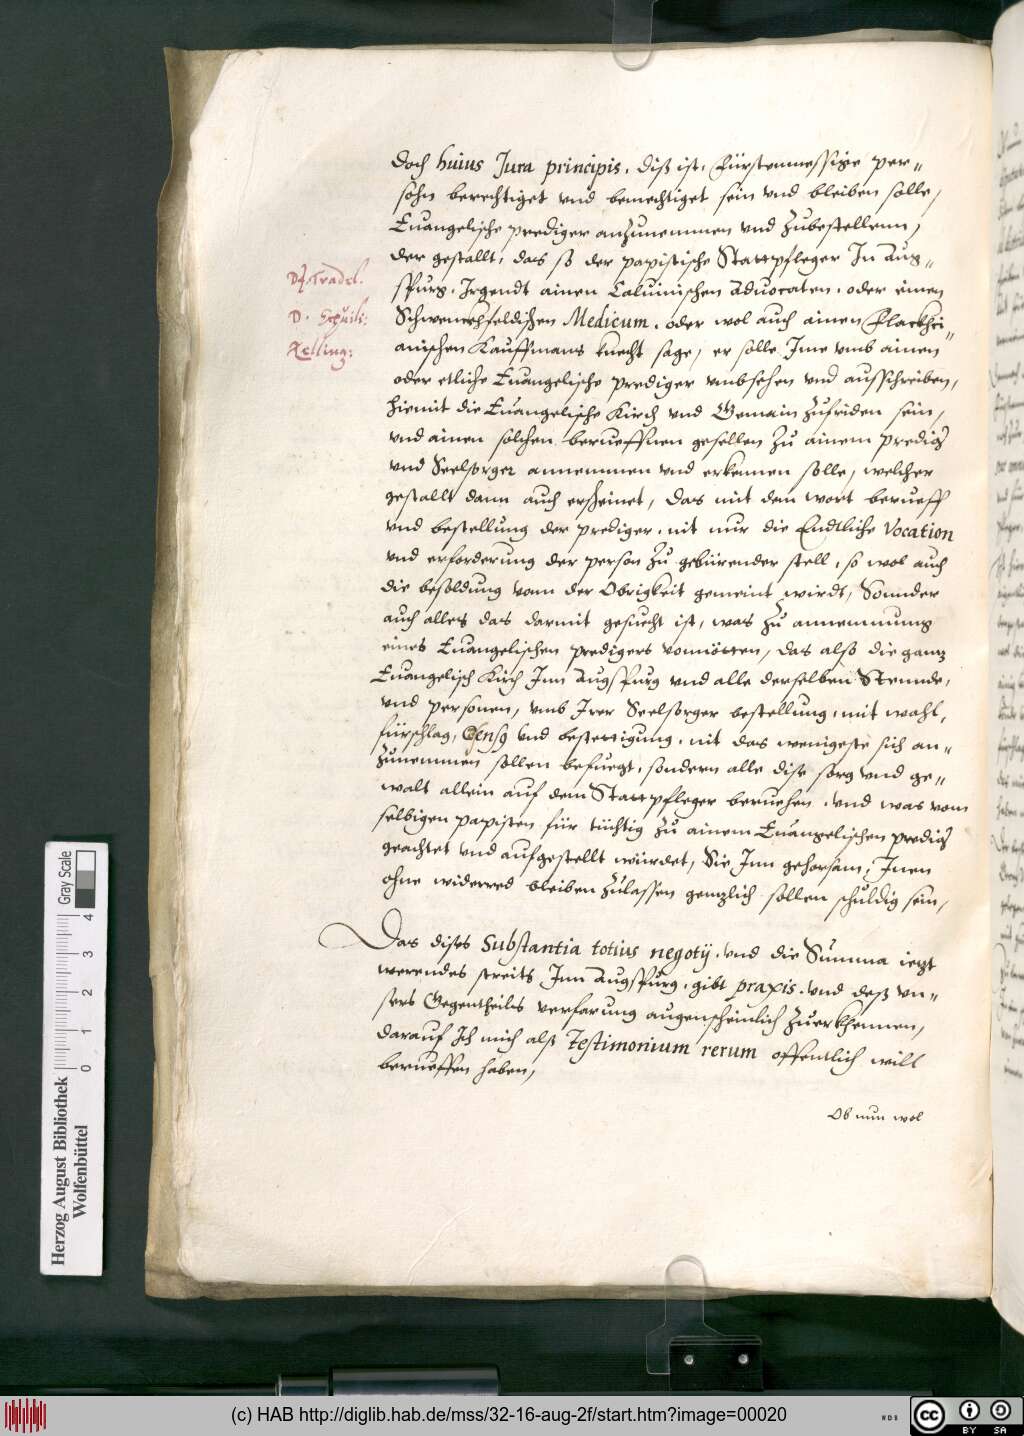 doch huius Jura principis, diß ist, Fürstenmessige per-
sohn berechtiget vnd bemechtiget sein vnd bleiben solle,
Euangelische prediger anzunemmen vnd zubestellenn,
der gestallt, das so der papistische Stattpfleger In Aug-
spurg, Irgendt ainen Caluinischen Aduocaten, oder einen
D. Tradel.
Schwenckhfeldischen Medicum, oder wol auch ainen Flackhi-
anischen Kauffmans knecht sage, er solle Ime vmb ainen
oder etliche Euangelische prediger vmbsehen vnd aufschreiben,
hiemit die Euangelische Kirch vnd Gemain zufriden sein,
vnd ainen solchen berueffnen gesellen zu ainem predig
vnd Seelsorger annemmen vnd erkennen solle, welcher
gestallt dann auch erscheinet, das mit dem wort berueff
vnd bestellung der prediger, nit nur die Endtliche Vocation
vnd erforderung der person zu gebürender stell, so wol auch
die besoldung vonn der Obrigkeit gemeint wirdt, Sonnder
auch alles das darmit gesucht ist, was zu annemmung
eines Euangelischen predigers vonnötten, das also die gantz
Euangelisch Kirch Inn Augspurg vnd alle derselben Stennde,
vnd personen, vmb Irer Seelsorger bestellung, mit wahl,
fürschlag, Censs vnd bestettigung, nit das wenigeste sich an-
zunemmen sollen befuegt, sondern alle dise sorg vnd ge-
walt allein auf dem Stattpfleger beruehen, vnd was vom
selbigen papisten für tüchtig zu ainem Euangelischen predig
geachtet vnd aufgestellt würdet, Sie Inn gehorsam, Inen
ohne widerred bleiben zulassen gentzlich sollen schuldig sein,
Das dises Substantia totius negotij, vnd die Summa ietzt
werendes streits Inn Augspurg, gibt praxis, vnd deß vn-
sers Gegentheils verfarung augenscheinlich zuerkhennen,
darauf Ich mich alß Testimonium rerum offentlich will
berueffen haben,
Ob nun wol
Gray Scale
0 1 2 3 4
Herzog August Bibliothek
Wolfenbüttel
(c) HAB http://diglib.hab.de/mss/32-16-aug-2f/start.htm?image=00020
WDB
cc
BY SA